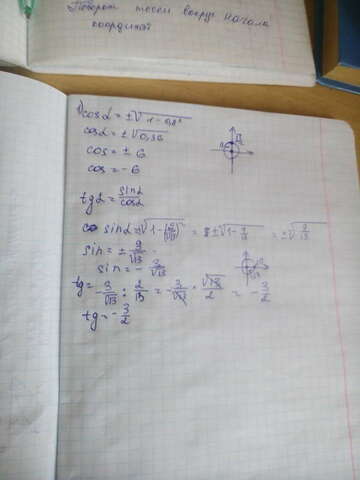 Поворот точки вокруг начала
координат
1) cos α = ±√1-0,8²
cos α = ±√0,36
cos = ± 6
cos = -6
tg α = sin α / cos α
sin α ±√1-(2/√13)² = ±√1-4/13 = ±√9/13
sin = ± 9/√13
sin = - 3/√13
tg = -3/√13 : 2/√13 = -3/√13 · √13/2 = -3/2
tg = -3/2